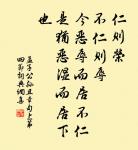 仁則榮
不仁則辱
今惡辱而居不仁
是猶惡濕而居下
也
孟子公孫丑章句上第